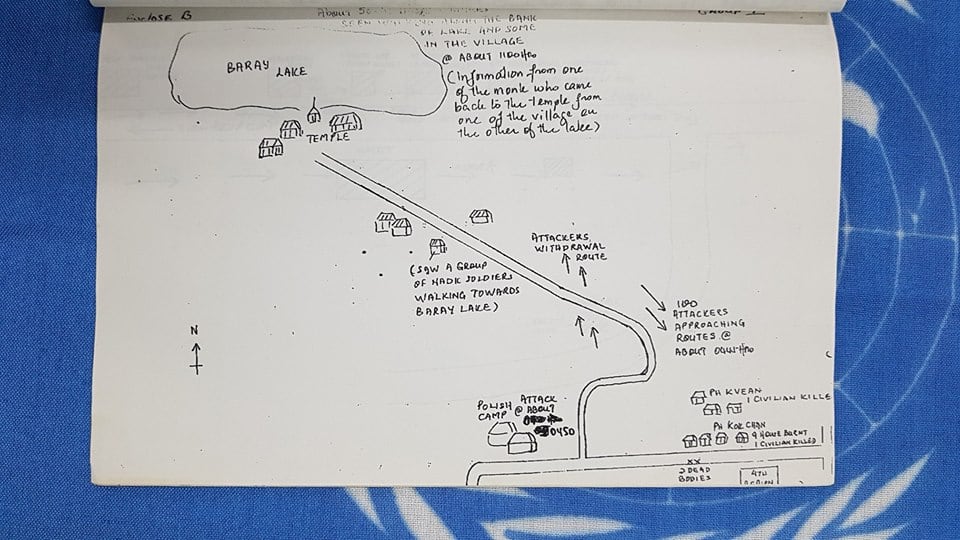 ABOUT
SEEN ALONG THE BANK
OF LAKE AND SOME
IN THE VILLAGE
@ ABOUT 1100Hno
(Information from one
of the monk who came
back to the Temple from
one of the village on
the other of the lake)
BARAY LAKE
TEMPLE
ATTACKERS
WITHDRAWAL
ROUTE
(SAW A GROUP
OF NADK SOLDIERS
WALKING TOWARDS
BARAY LAKE)
100
ATTACKERS
APPROACHING
ROUTES @
ABOUT 0445Hno
N
PH KVEAN
1 CIVILIAN KILLE
POLISH
CAMP
ATTACK
@ ABOUT
0450
PH KOK CHAN
9 HOUSE BURNT
1 CIVILIAN KILLED
XX
2 DEAD
BODIES
4TH